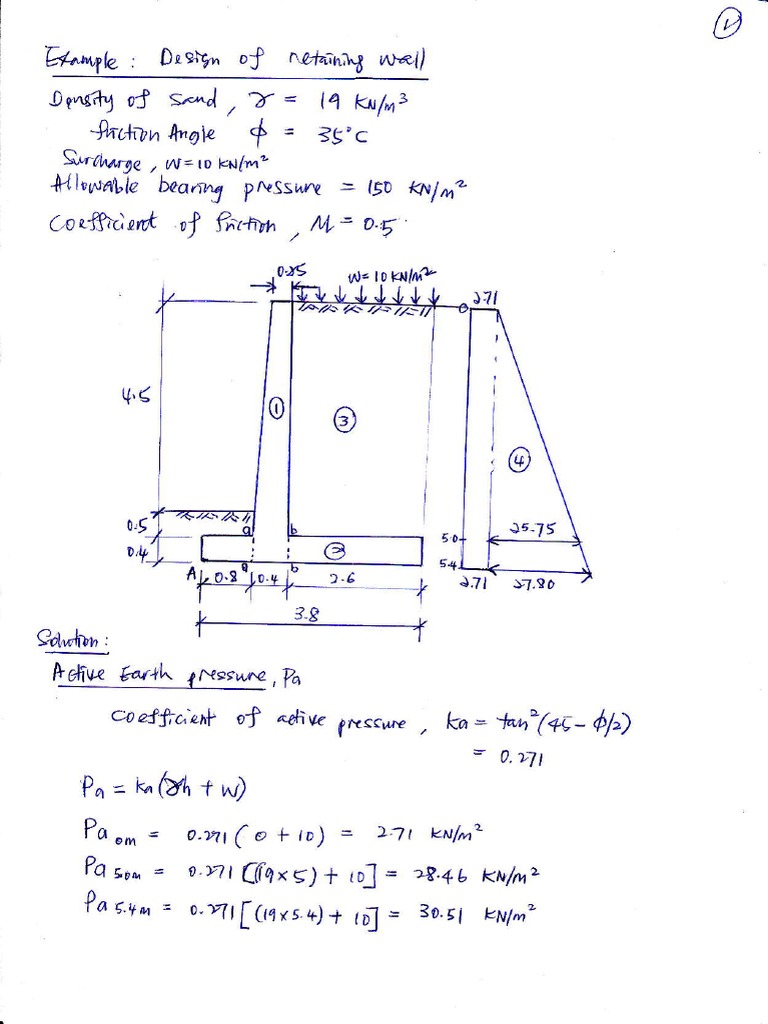 1
Example : Design of retaining wall
Density of sand, γ = 19 KN/m³
friction Angle φ = 35°C
Surcharge, W = 10 KN/m²
Allowable bearing pressure = 150 KN/m²
Coefficient of friction, M = 0.5
0.25 W = 10 KN/m²
0 2.71
4.5
1
3
4
0.5 a b 5.0 25.75
0.4 2
A 0.8 a 0.4 b 2.6 5.4 2.71 27.80
3.8
Solution :
Active Earth pressure, Pa
Coefficient of active pressure, Ka = tan²(45 - φ/2)
= 0.271
Pa = Ka(γh + W)
Pa 0m = 0.271( 0 + 10) = 2.71 KN/m²
Pa 5.0m = 0.271 [(19×5) + 10] = 28.46 KN/m²
Pa 5.4m = 0.271 [(19×5.4) + 10] = 30.51 KN/m²